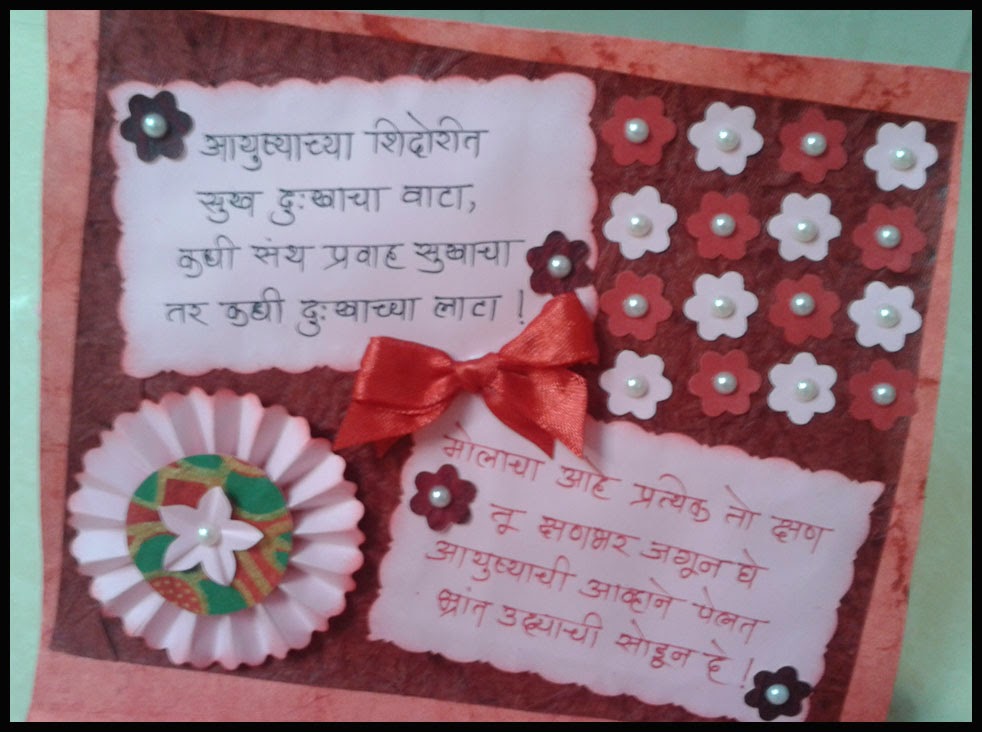 आयुष्याच्या शिदोरीत
सुख दुःखाचा वाटा,
कधी संथ प्रवाह सुखाचा
तर कधी दुःखाच्या लाटा !
मोलाचा आहे प्रत्येक तो क्षण
तू क्षणभर जगून घे
आयुष्याची आव्हाने पेलत
भ्रांत उद्याची सोडून दे !